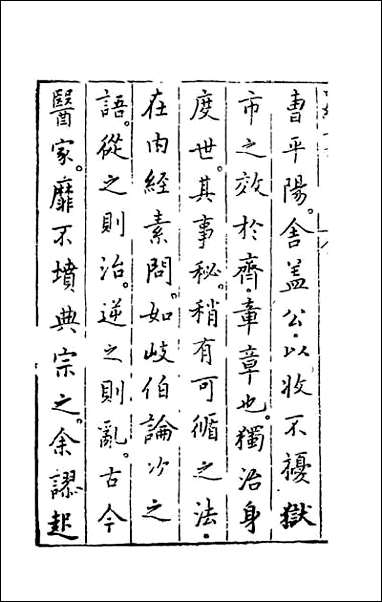 曹平陽。舍盖公。以收不擾獄
市之效於齊。章章也。獨治身
度世。其事秘。稍有可循之法。
在内經素問。如歧伯論次之
語。從之則治。逆之則亂。古今
醫家。靡不墳典宗之。余謬起